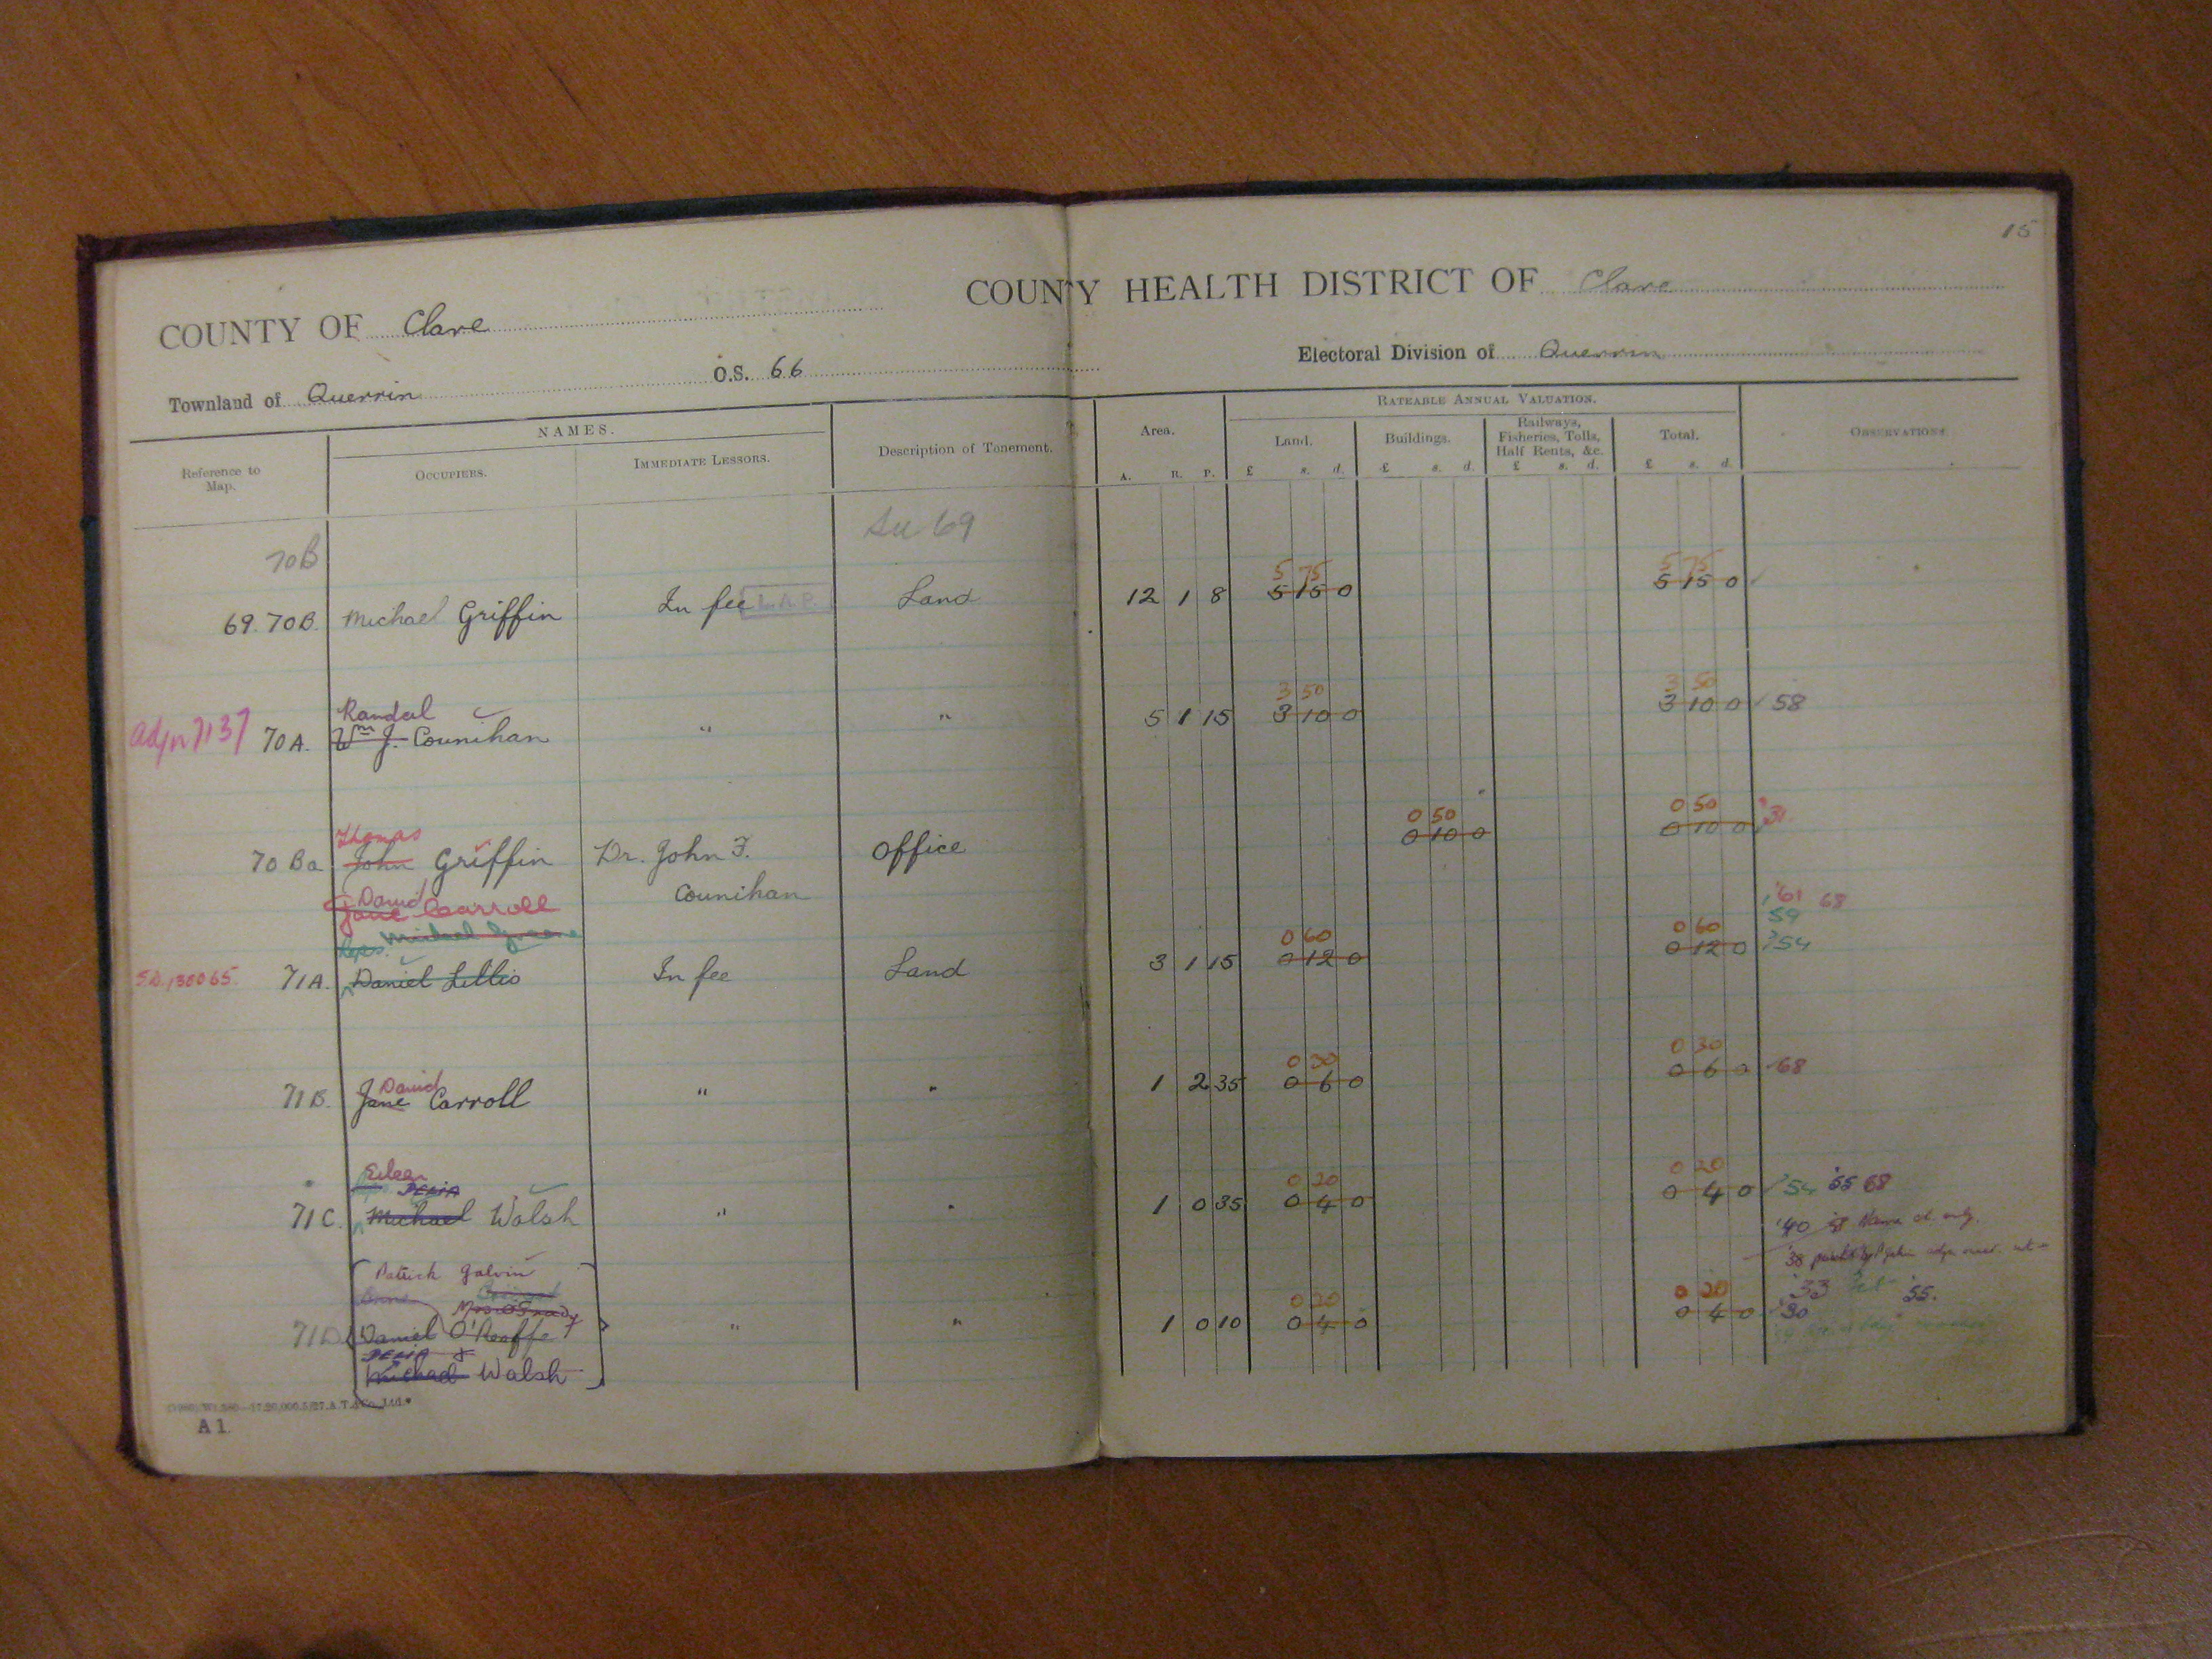 15
COUNTY OF Clare
COUNTY HEALTH DISTRICT OF Clare
Townland of Querrin
O.S. 66
Electoral Division of Querrin
Reference to Map.
NAMES.
OCCUPIERS.
IMMEDIATE LESSORS.
Description of Tenement.
Area.
A. R. P.
RATEABLE ANNUAL VALUATION.
Land.
£ s. d.
Buildings.
£ s. d.
Railways, Fisheries, Tolls, Half Rents, &c.
£ s. d.
Total.
£ s. d.
OBSERVATIONS
70B
See 69
5 75 5 75
69. 70B. Michael Griffin In fee L.A.P. Land 12 1 8 5 15 0 5 15 0
Randal 3 50 3 50
adjn 7137 70A. Wm J. Counihan " " 5 1 15 3 10 0 3 10 0 58
Thomas 0 50 0 50
70 Ba John Griffin Dr. John F. Office 0 10 0 0 10 0 '31
Counihan
David
Jane Carroll '61 68
Michael Greene 59
Reps. 0 60 0 60
S.D. 130065. 71A. Daniel Lillis In fee Land 3 1 15 0 12 0 0 12 0 '54
David 0 30 0 30
71B. Jane Carroll " " 1 2 35 0 6 0 0 6 0 68
Eileen
DELIA 0 20 0 20
71C. Michael Walsh " " 1 0 35 0 4 0 0 4 0 '54 '55 68
'40
'38
Patrick Galvin
'33 '55.
Mrs O'Grady 0 20 0 20
71D. Daniel O'Keaffe " " 1 0 10 0 4 0 0 4 0 '30
DELIA &
Michael Walsh
A 1.